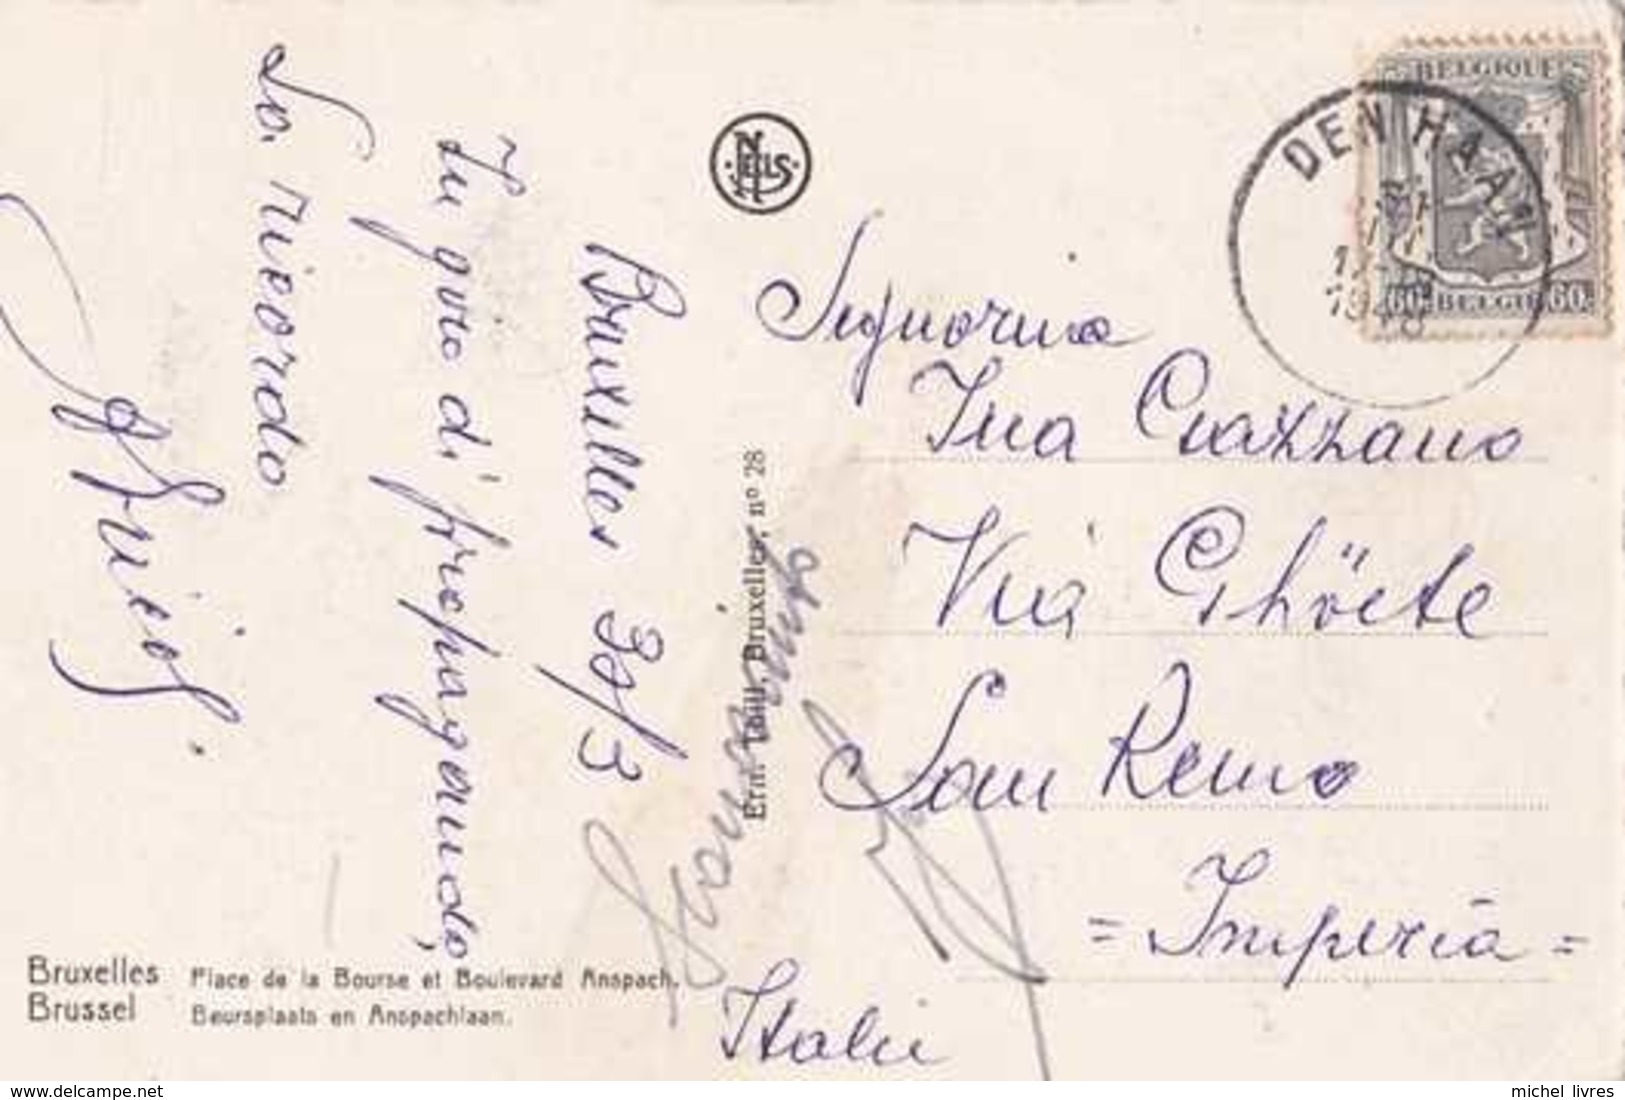 Bruxelles 30/3
In giro di propaganda,
La ricordo
NELS
Ern. Thill, Bruxelles, nº 28
Signorina
Ina Grazzano
Via Ghöete
San Remo
= Imperia =
Italie
BELGIQUE
60c BELGIE 60c
DEN HAAN
Bruxelles Place de la Bourse et Boulevard Anspach.
Brussel Beursplaats en Anspachlaan.
www.delcampe.net
michel_livres